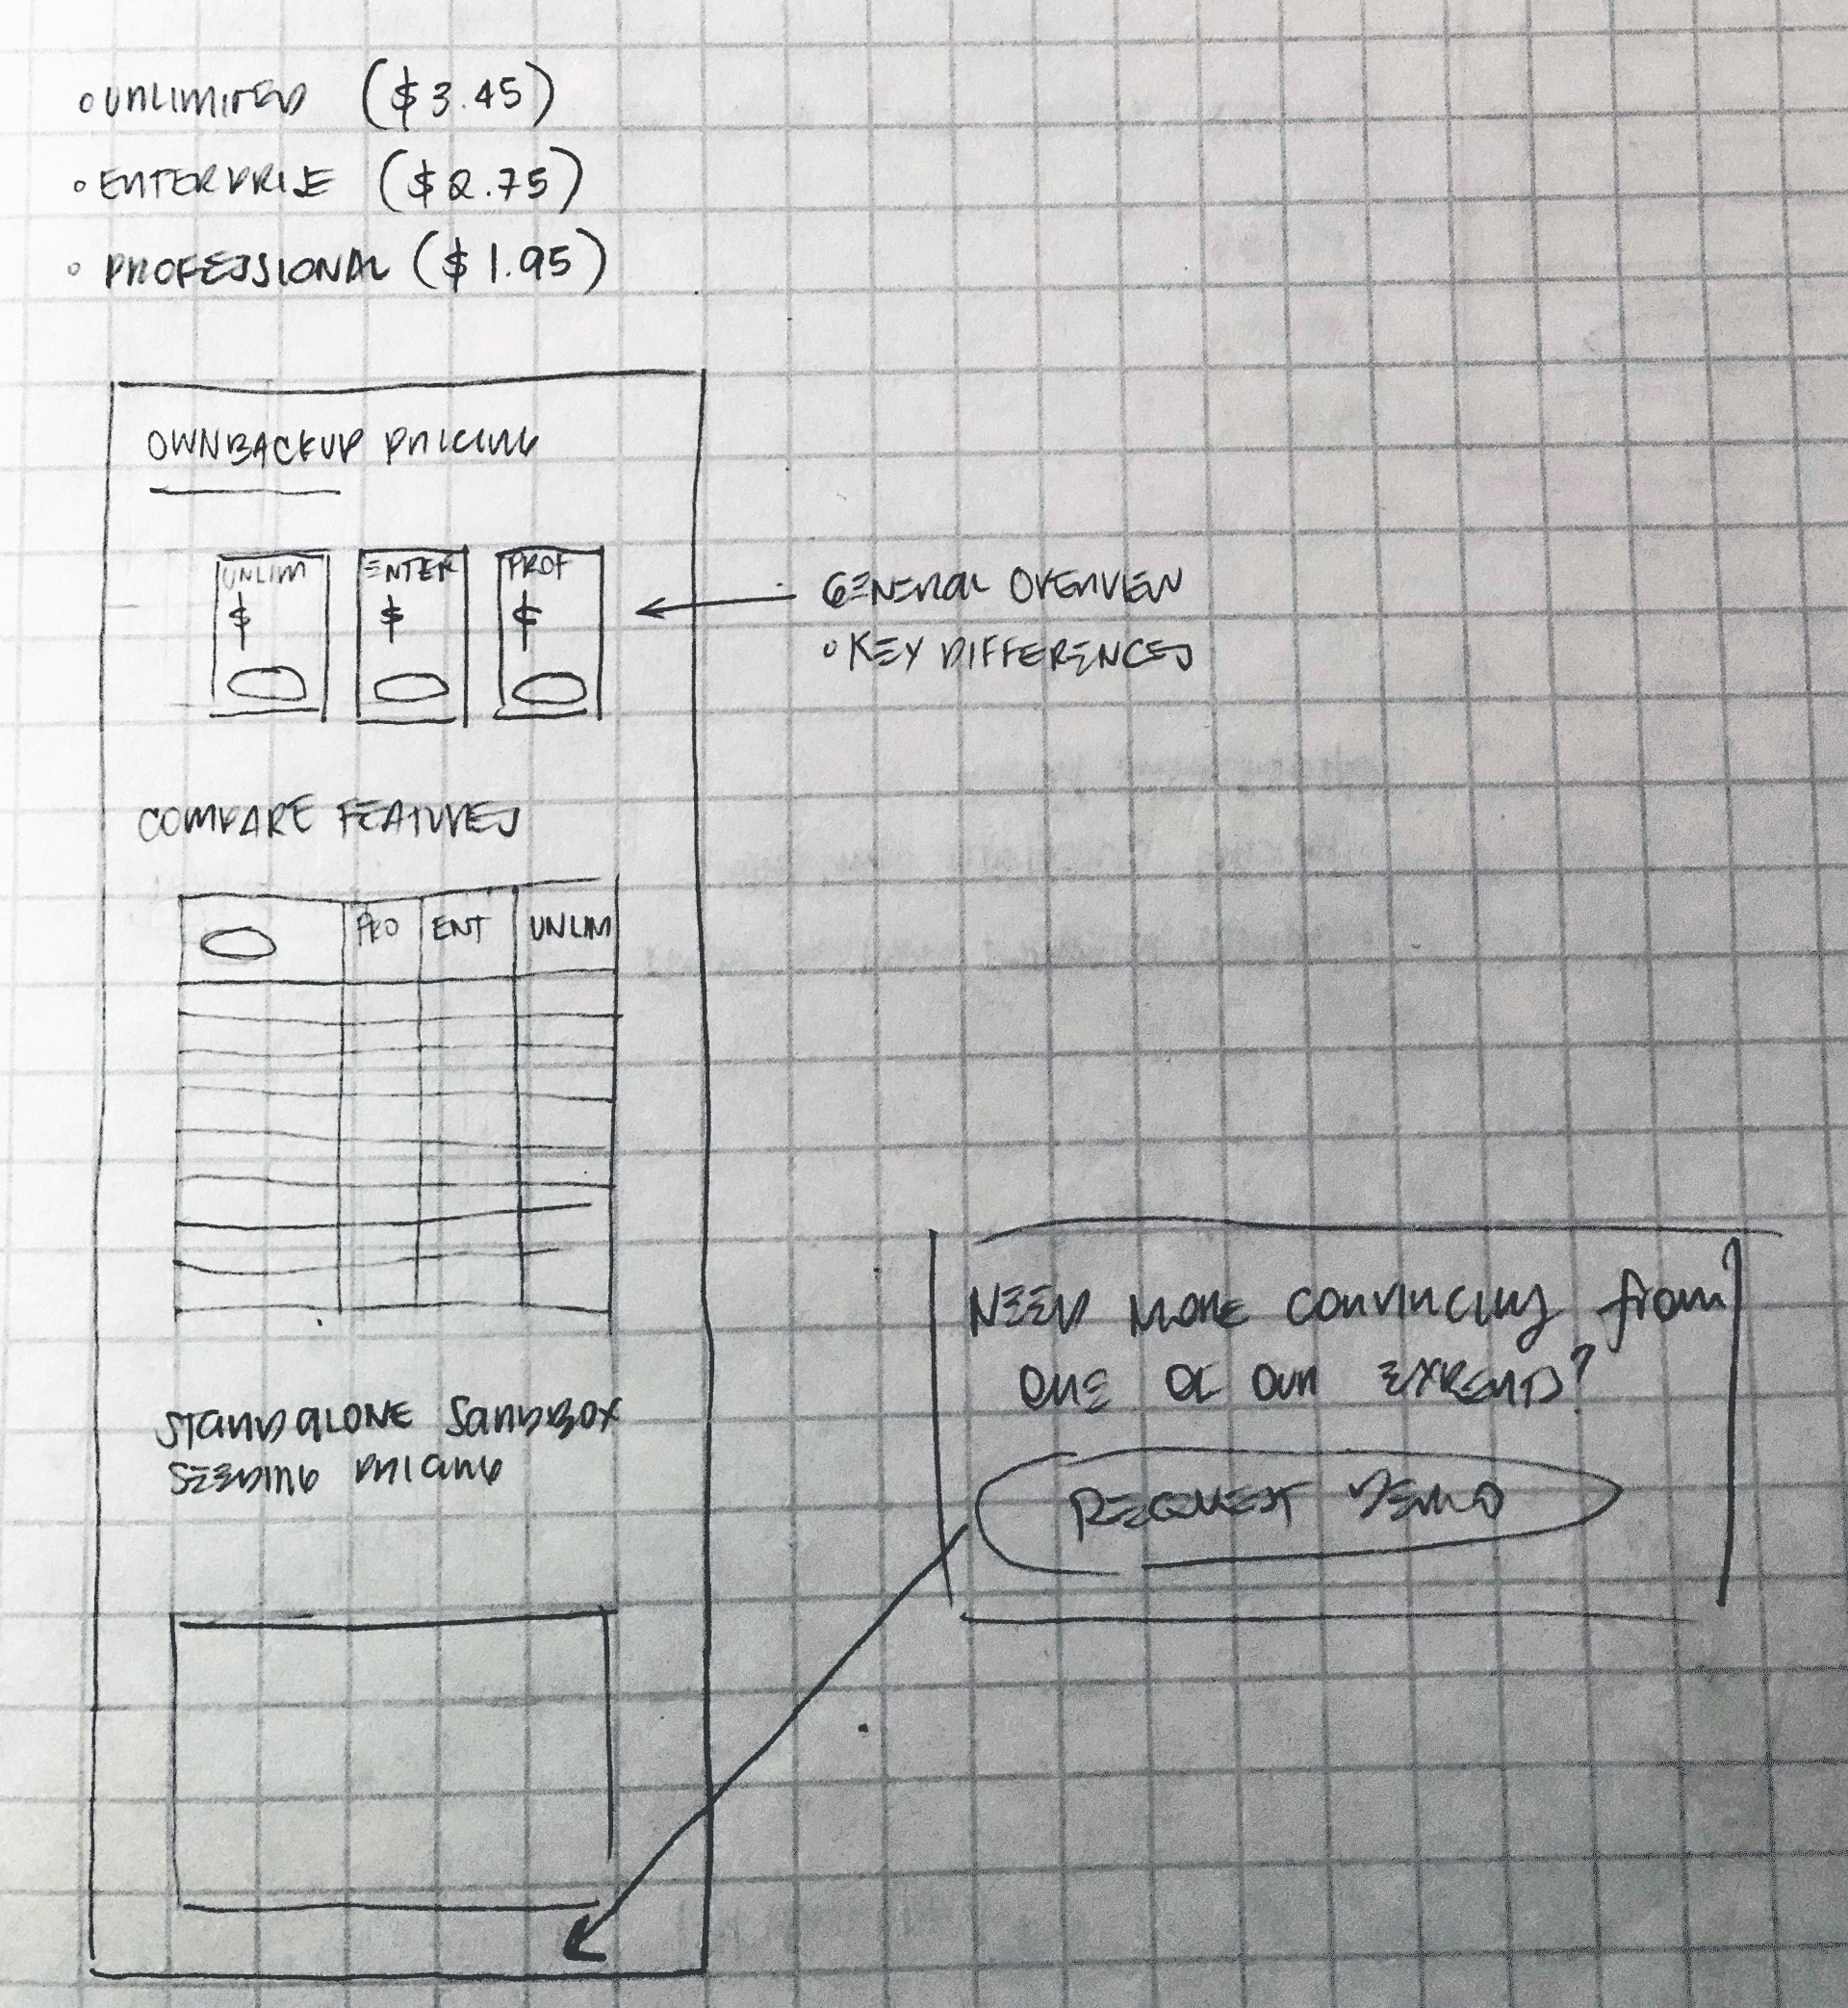 UNLIMITED ($3.45)
ENTERPRISE ($2.75)
PROFESSIONAL ($1.95)
OWNBACKUP PRICING
UNLIM
$
ENTER
$
PROF
$
GENERAL OVERVIEW
KEY DIFFERENCES
COMPARE FEATURES
PRO
ENT
UNLIM
STANDALONE SANDBOX
SEEDING PRICING
NEED MORE CONVINCING from
ONE OF OUR EXPERTS?
REQUEST DEMO